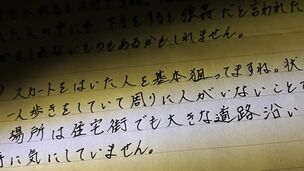 人の中に下手をすると強姦だと言われた
しまうものもあるかもしれません。
)スカートをはいた人を基本狙ってますね。状
一人歩きをしていて周りに人がいないことで
場所は住宅街でも大きな道路沿い
に気にしていません。